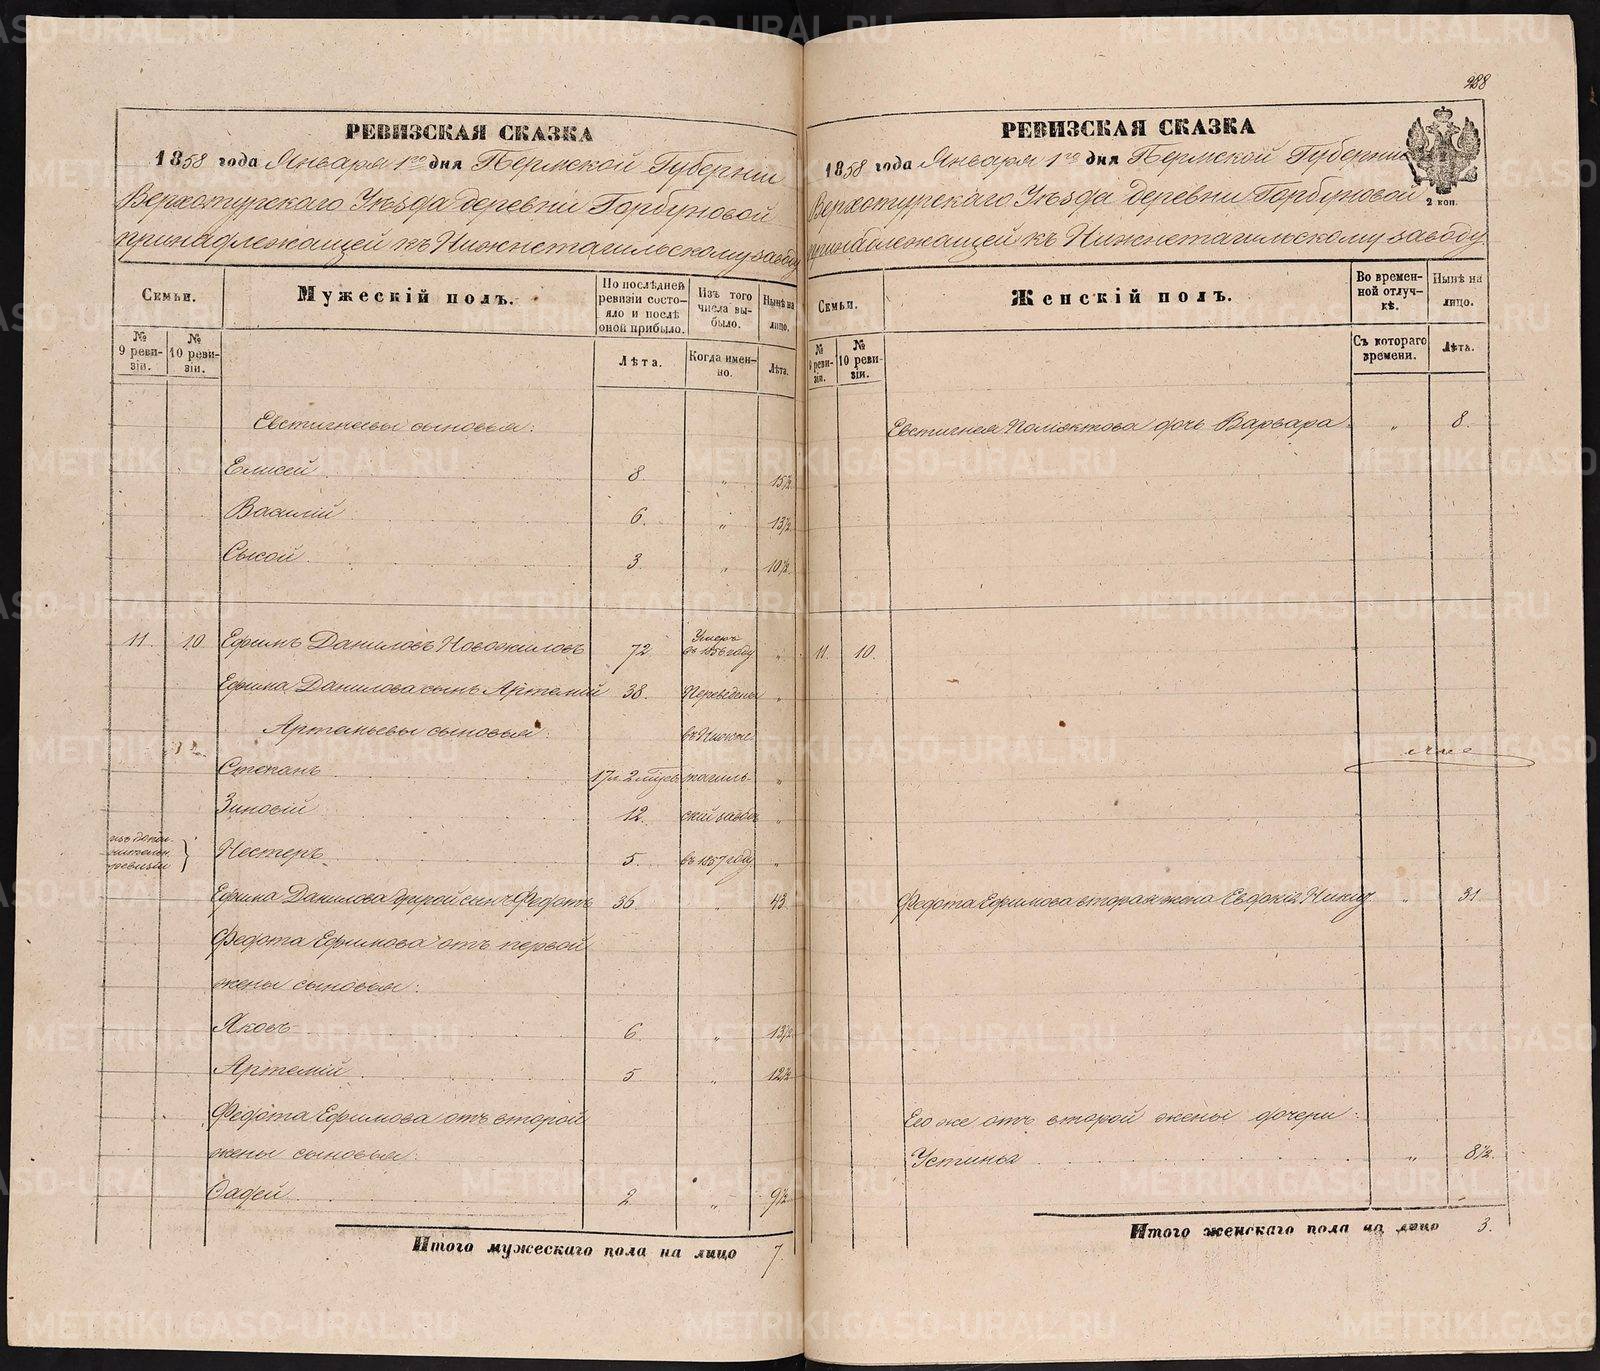 288
РЕВИЗСКАЯ СКАЗКА
1858 года Января 1го дня Пермской Губернии
Верхотурскаго Уѣзда деревни Горбуновой
принадлежащей къ Нижнетагильскому заводу
Семьи.
Мужескій полъ.
По послѣдней ревизіи состояло и послѣ оной прибыло.
Изъ того числа выбыло.
Нынѣ на лицо.
№ 9 ревизіи.
№ 10 ревизіи.
Лѣта.
Когда именно.
Лѣта.
Евстигнеевы сыновья:
Елисей 8 „ 15½
Василій 6. „ 13½
Сысой 3. „ 10½
11. 10 Ефимъ Даниловъ Новожиловъ 72 Умеръ въ 1856 году „
Ефима Данилова сынъ Артемій 38. Переведены „
Артемьевы сыновья: въ Нижне-
Степанъ 17 л. 2 мѣсяц. тагиль- „
Зиновій 12. скій заводъ „
изъ дополнительн. ревизіи } Нестеръ 5. въ 1857 году „
Ефима Данилова другой сынъ Федотъ 36 „ 43.
Федота Ефимова отъ первой
жены сыновья:
Яковъ 6 „ 13½
Артемій 5 „ 12½
Федота Ефимова отъ второй
жены сыновья:
Фадей 2 „ 9½
Итого мужескаго пола на лицо 7.
РЕВИЗСКАЯ СКАЗКА
1858 года Января 1го дня Пермской Губернии
Верхотурскаго Уѣзда деревни Горбуновой
2 коп.
принадлежащей къ Нижнетагильскому заводу
Семьи.
Женскій полъ.
Во временной отлучкѣ.
Нынѣ на лицо.
№ 9 ревизіи.
№ 10 ревизіи.
Съ котораго времени.
Лѣта.
Евстигнея Поліектова дочь Варвара „ 8.
11. 10.
Федота Ефимова вторая жена Евдокія „ 31
Его же отъ второй жены дочери:
Устинья „ 8½.
Итого женскаго пола на лицо 3.
METRIKI.GASO-URAL.RU